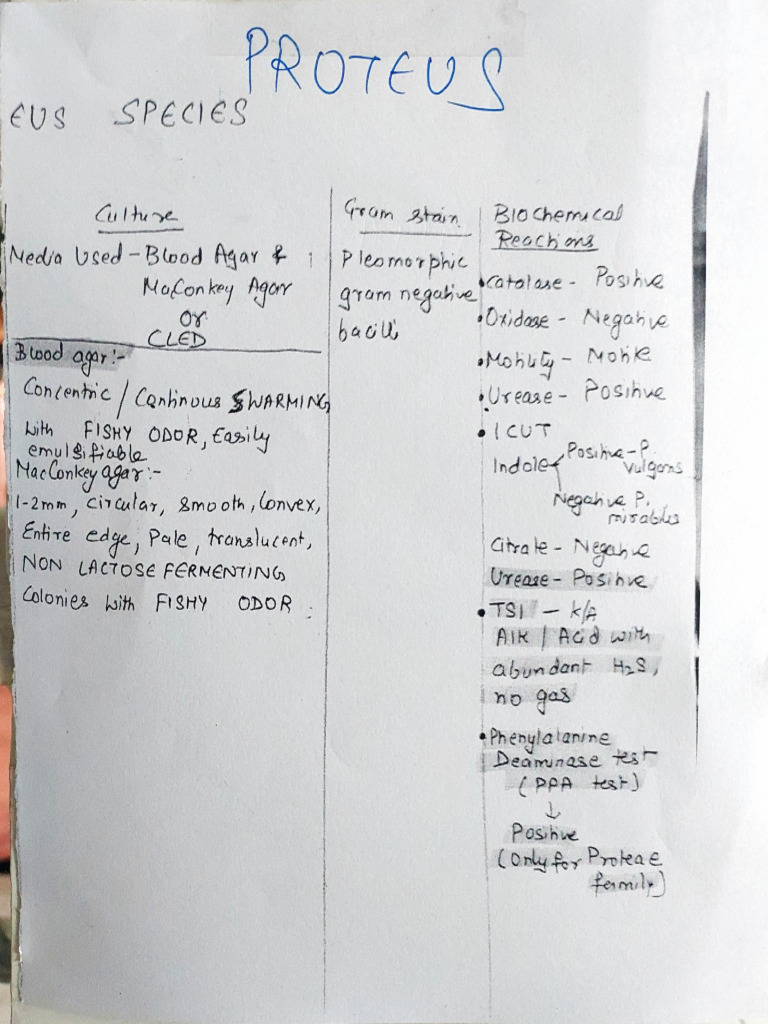 PROTEUS
EUS SPECIES
Culture
Media Used - Blood Agar &
MaConkey Agar
or
CLED
Blood agar:-
Concentric / Continous SWARMING
with FISHY ODOR, Easily
emulsifiable
MacConkey agar:-
1-2mm, circular, smooth, Convex,
Entire edge, Pale, translucent,
NON LACTOSE FERMENTING
Colonies with FISHY ODOR
Gram stain
Pleomorphic
gram negative
bacilli
BIOChemical
Reactions
•Catalase - Positive
•Oxidase - Negative
•Motility - Motile
•Urease - Positive
•ICUT
Indole Positive - P.
vulgaris
Negative P.
mirabilis
Citrate - Negative
Urease - Positive
•TSI - K/A
Alk / Acid with
abundant H₂S,
no gas
•Phenylalanine
Deaminase test
(PPA test)
↓
Positive
(Only for Proteae
family)